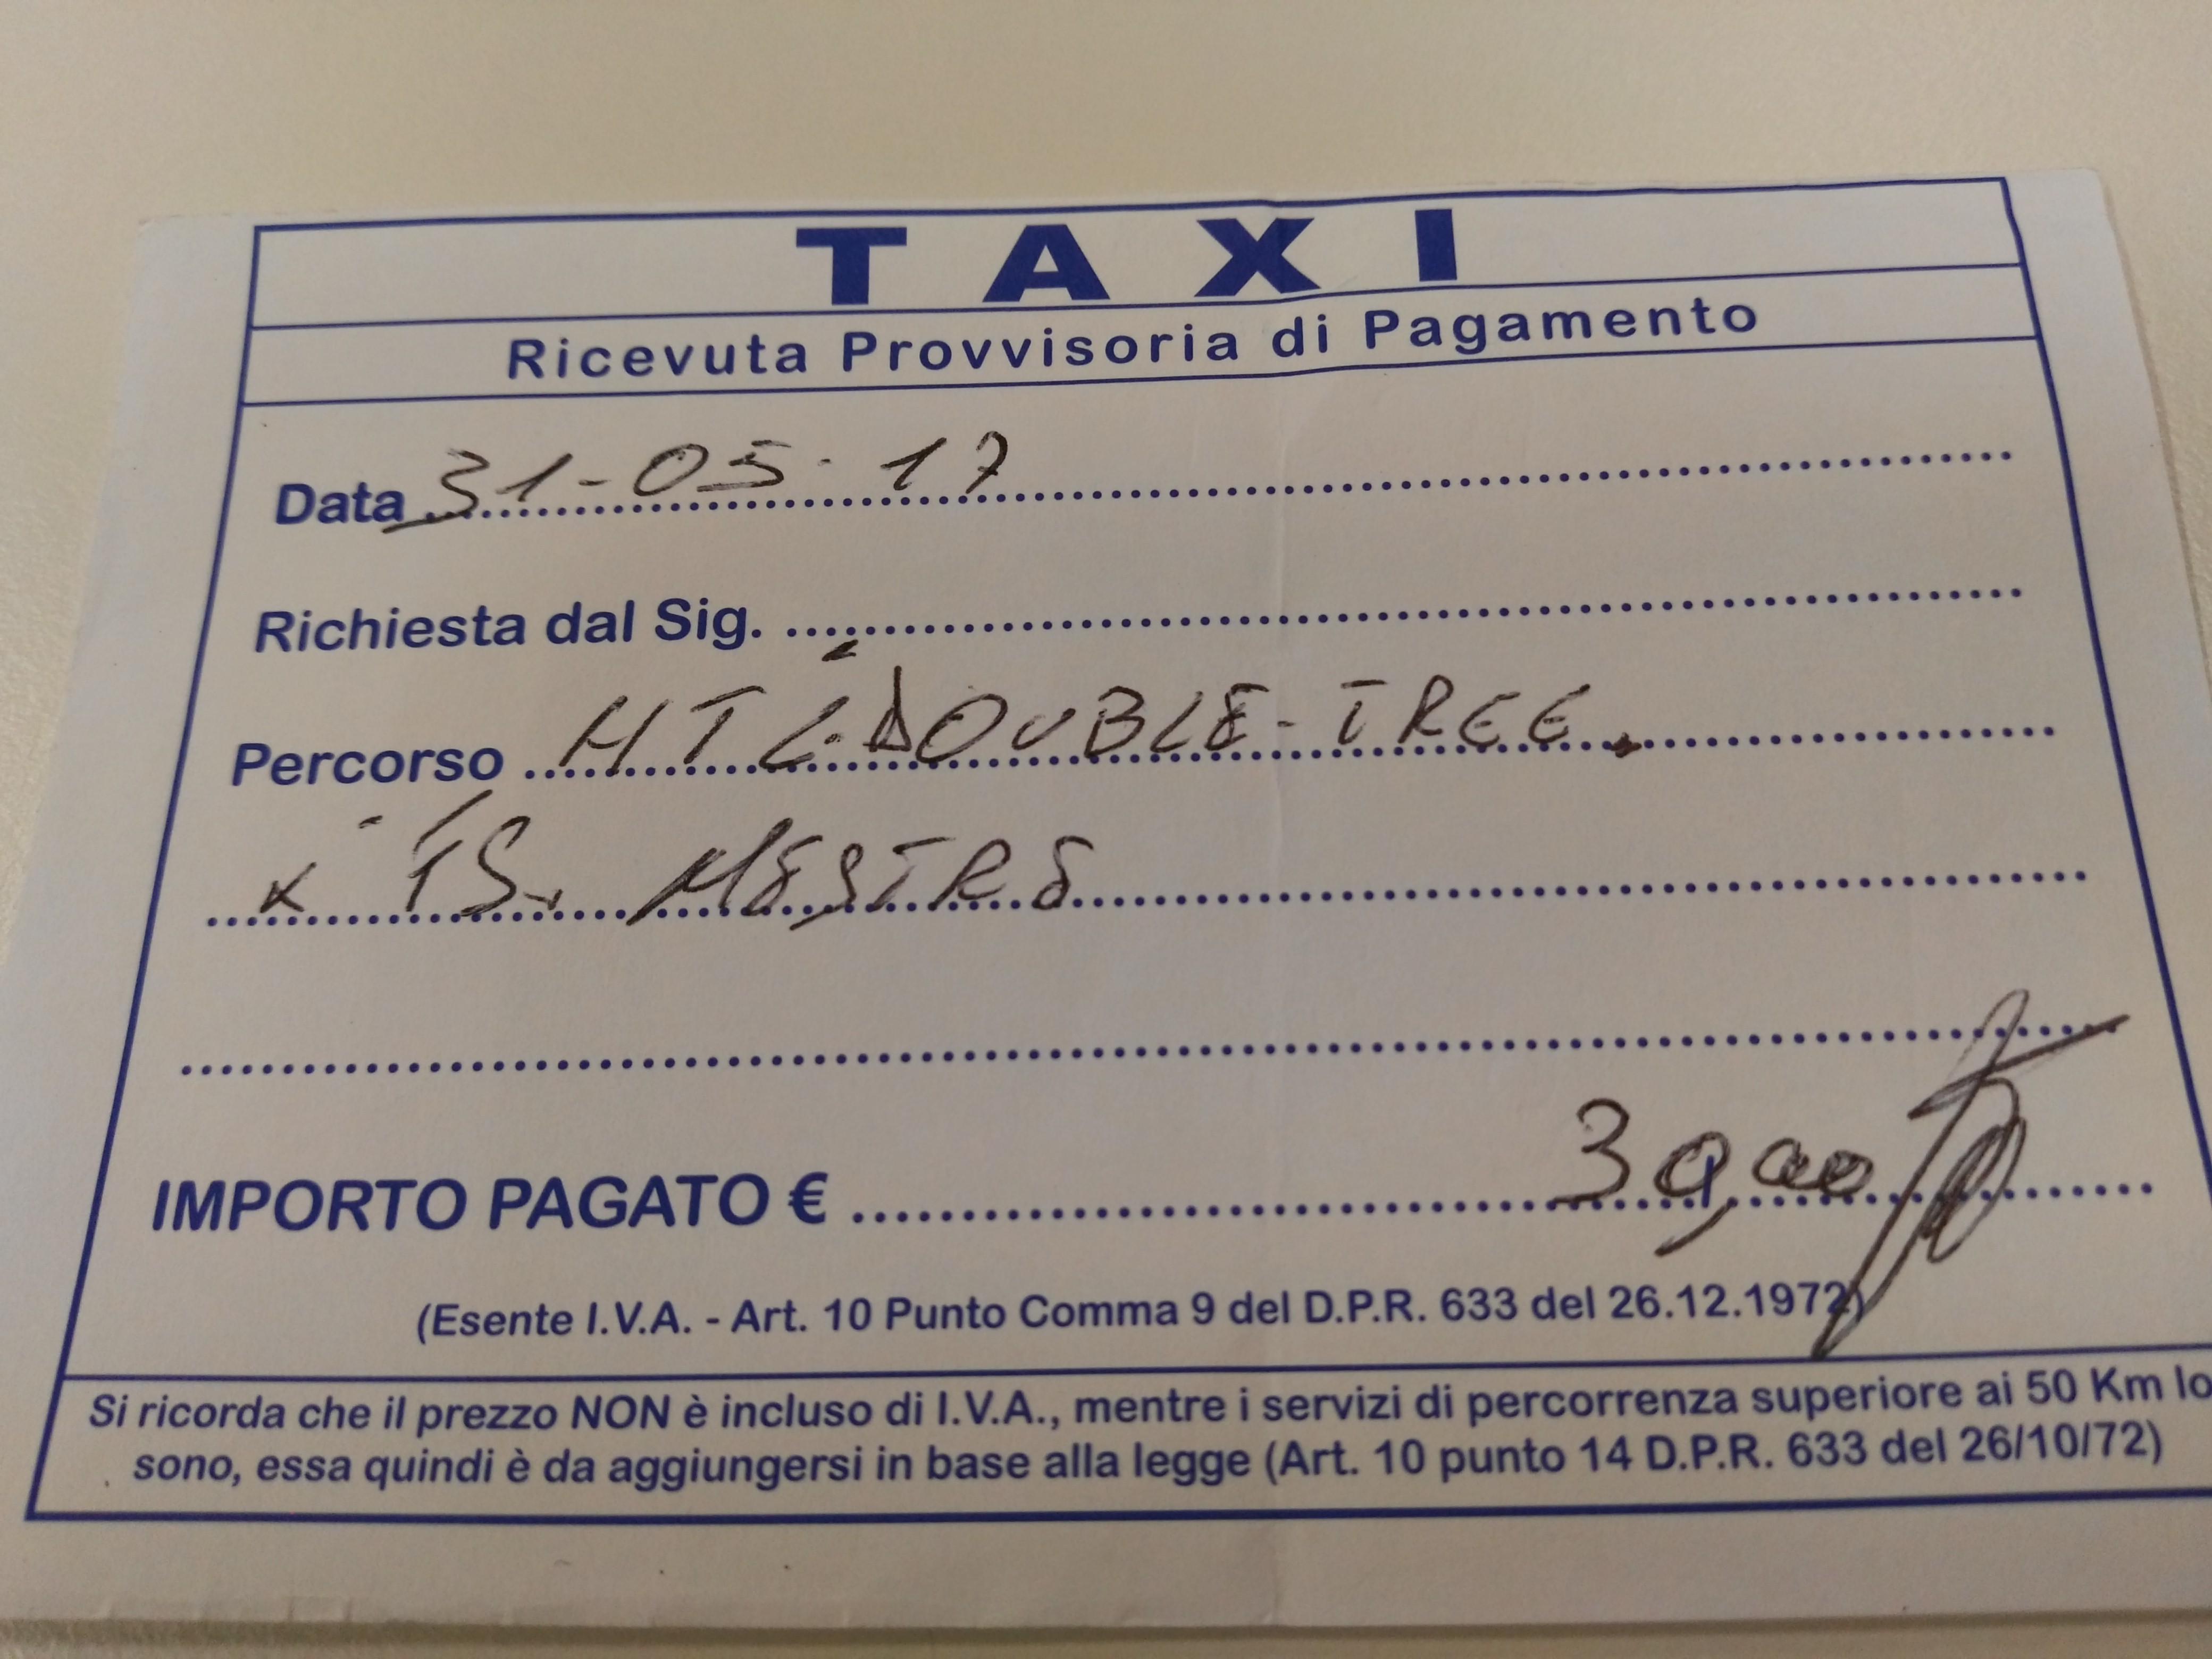 TAXI
Ricevuta Provvisoria di Pagamento
Data 31-05-17
Richiesta dal Sig.
Percorso HTL. DOUBLE-TREE.
x FS. MESTRE
IMPORTO PAGATO € 30,00
(Esente I.V.A. - Art. 10 Punto Comma 9 del D.P.R. 633 del 26.12.1972)
Si ricorda che il prezzo NON è incluso di I.V.A., mentre i servizi di percorrenza superiore ai 50 Km lo
sono, essa quindi è da aggiungersi in base alla legge (Art. 10 punto 14 D.P.R. 633 del 26/10/72)